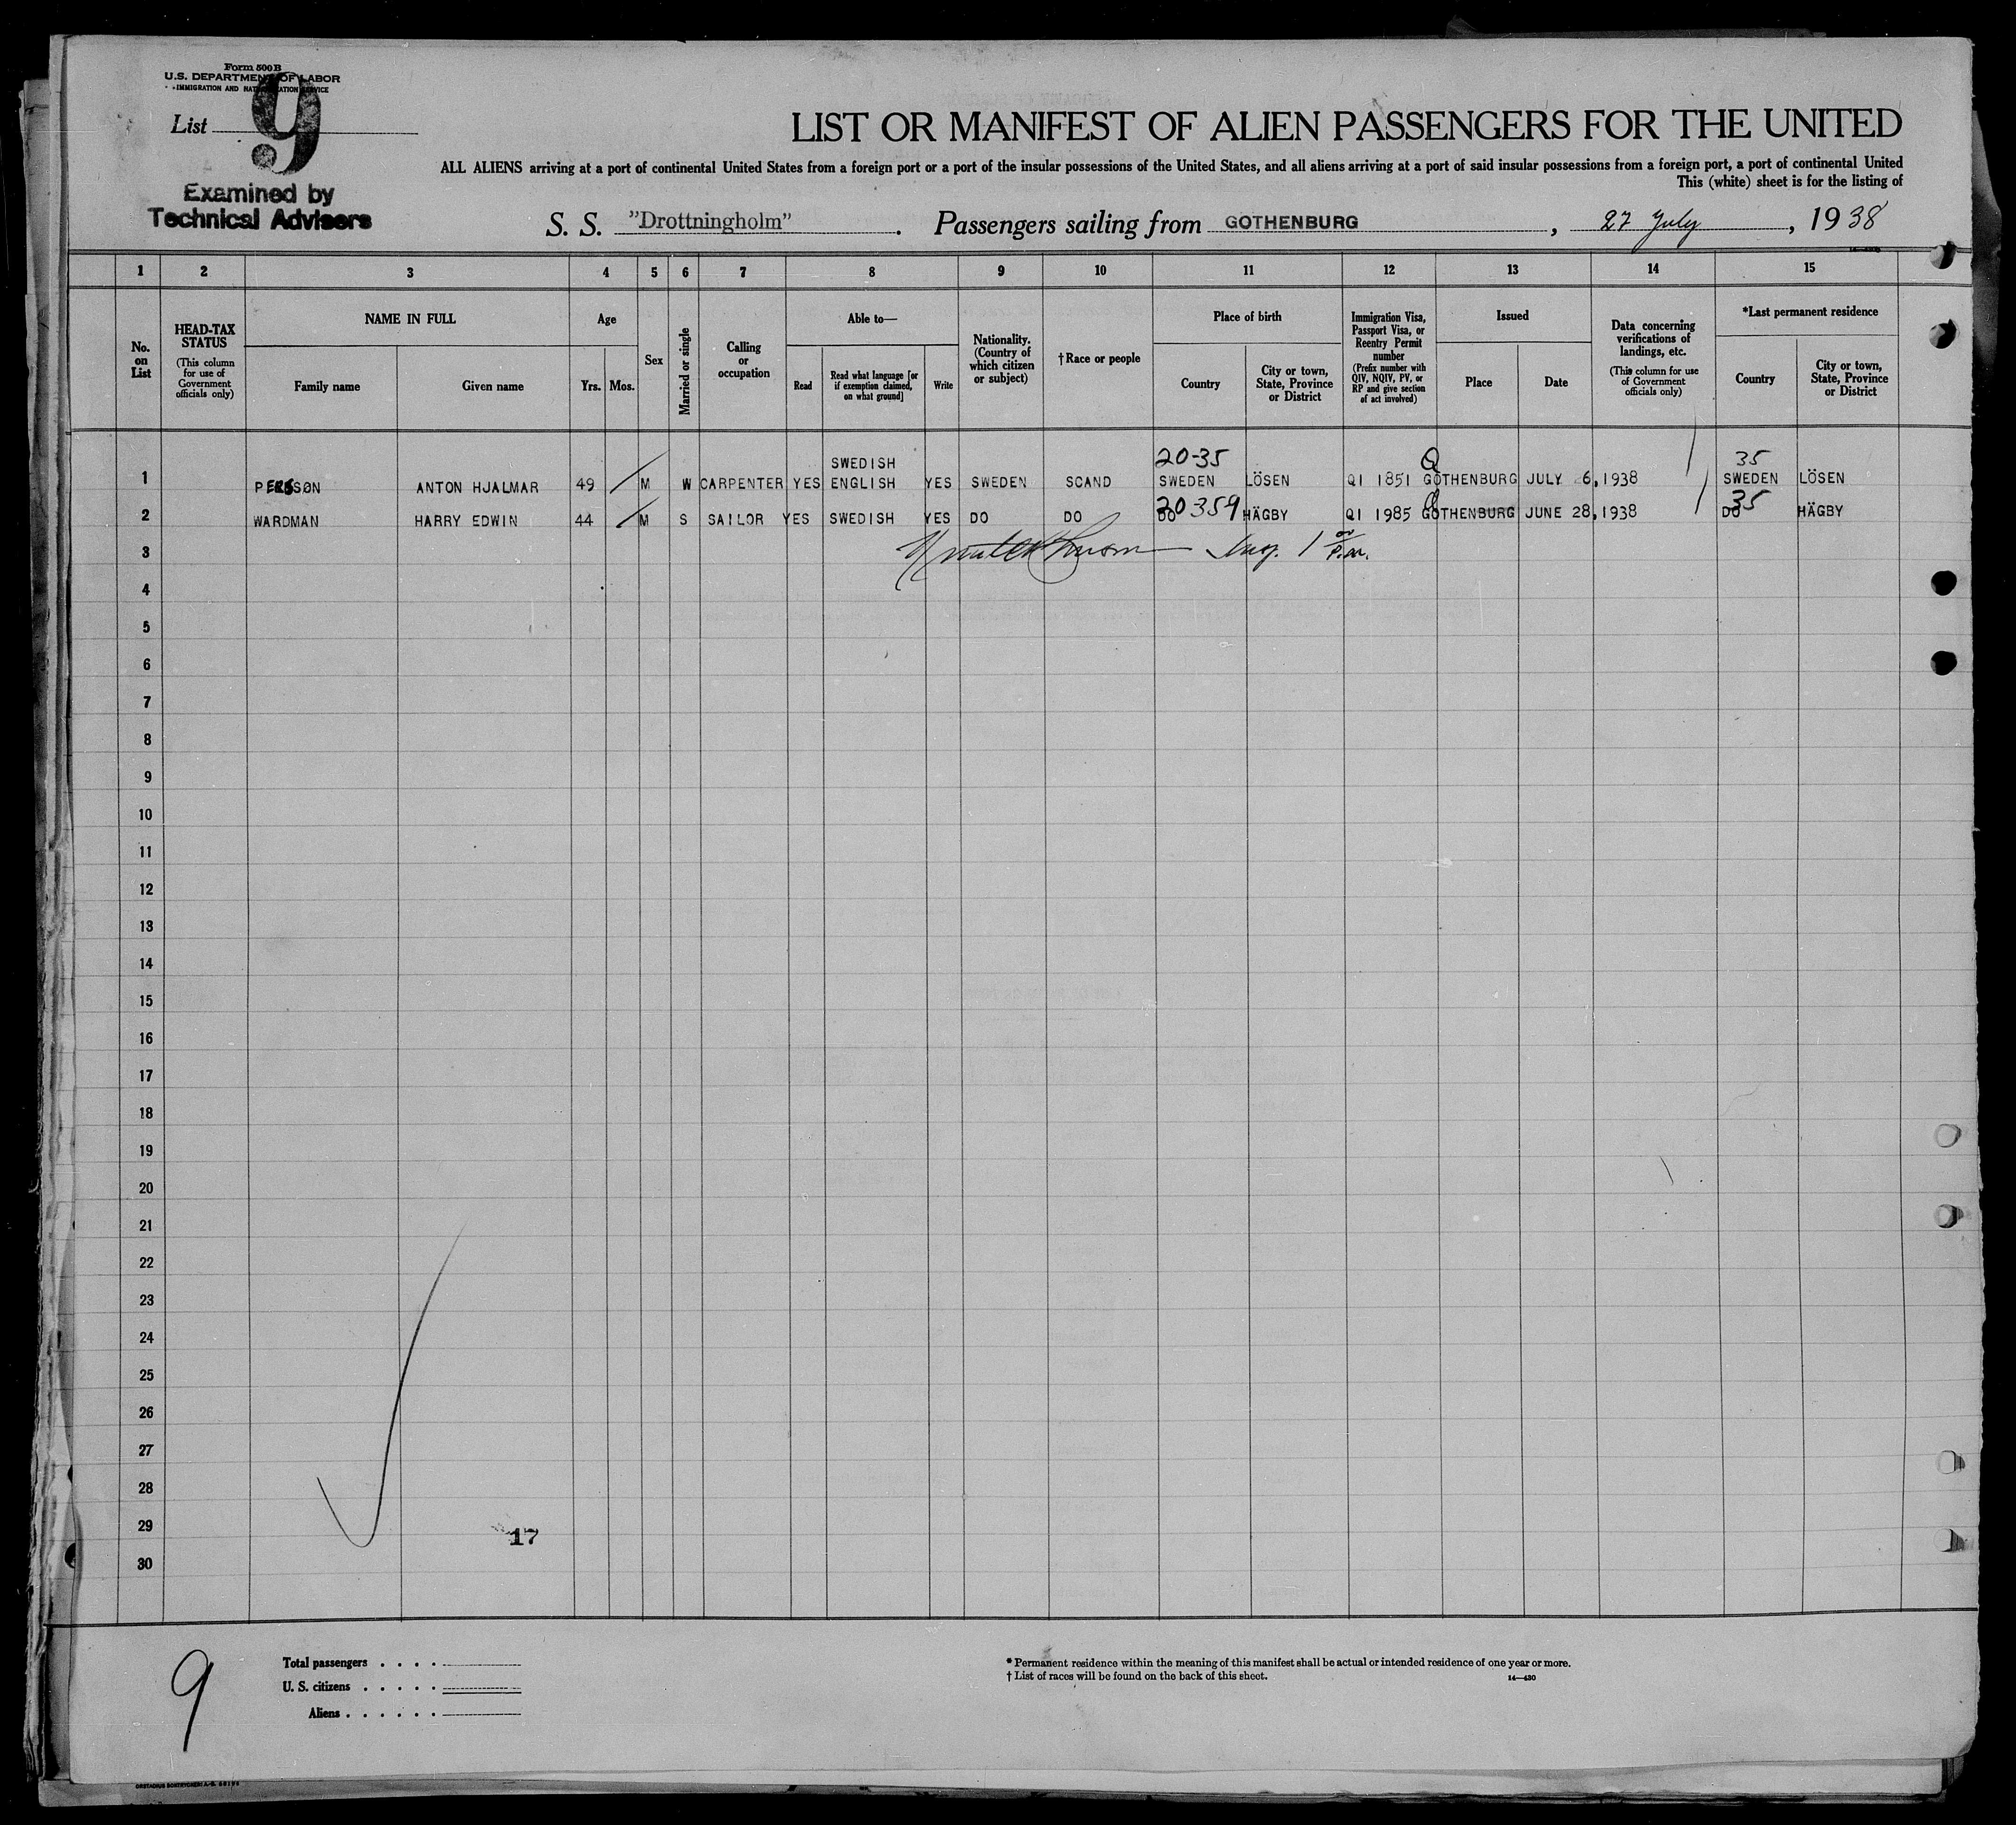 Form 500 B
U.S. DEPARTMENT OF LABOR
IMMIGRATION AND NATURALIZATION SERVICE
List 9
Examined by
Technical Advisers
LIST OR MANIFEST OF ALIEN PASSENGERS FOR THE UNITED
ALL ALIENS arriving at a port of continental United States from a foreign port or a port of the insular possessions of the United States, and all aliens arriving at a port of said insular possessions from a foreign port, a port of continental United
This (white) sheet is for the listing of
S. S. "Drottningholm". Passengers sailing from GOTHENBURG, 27 July, 1938
1 2 3 4 5 6 7 8 9 10 11 12 13 14 15
No. on List
HEAD-TAX STATUS
(This column for use of Government officials only)
NAME IN FULL
Family name
Given name
Age
Yrs. Mos.
Sex
Married or single
Calling or occupation
Able to—
Read
Read what language [or if exemption claimed, on what ground]
Write
Nationality. (Country of which citizen or subject)
†Race or people
Place of birth
Country
City or town, State, Province or District
Immigration Visa, Passport Visa, or Reentry Permit number
(Prefix number with QIV, NQIV, PV, or RP and give section of act involved)
Issued
Place
Date
Data concerning verifications of landings, etc.
(This column for use of Government officials only)
*Last permanent residence
Country
City or town, State, Province or District
SWEDISH 20-35 Q 35
1 PERSSON ANTON HJALMAR 49 M W CARPENTER YES ENGLISH YES SWEDEN SCAND SWEDEN LÖSEN QI 1851 GOTHENBURG JULY 6,1938 SWEDEN LÖSEN
20 359 Q 35
2 WARDMAN HARRY EDWIN 44 M S SAILOR YES SWEDISH YES DO DO DO HÄGBY QI 1985 GOTHENBURG JUNE 28,1938 DO HÄGBY
3
4
5
6
7
8
9
10
11
12
13
14
15
16
17
18
19
20
21
22
23
24
25
26
27
28
29 17
30
9
Total passengers . . . .
U. S. citizens . . . . .
Aliens . . . . . .
* Permanent residence within the meaning of this manifest shall be actual or intended residence of one year or more.
† List of races will be found on the back of this sheet.
14—430